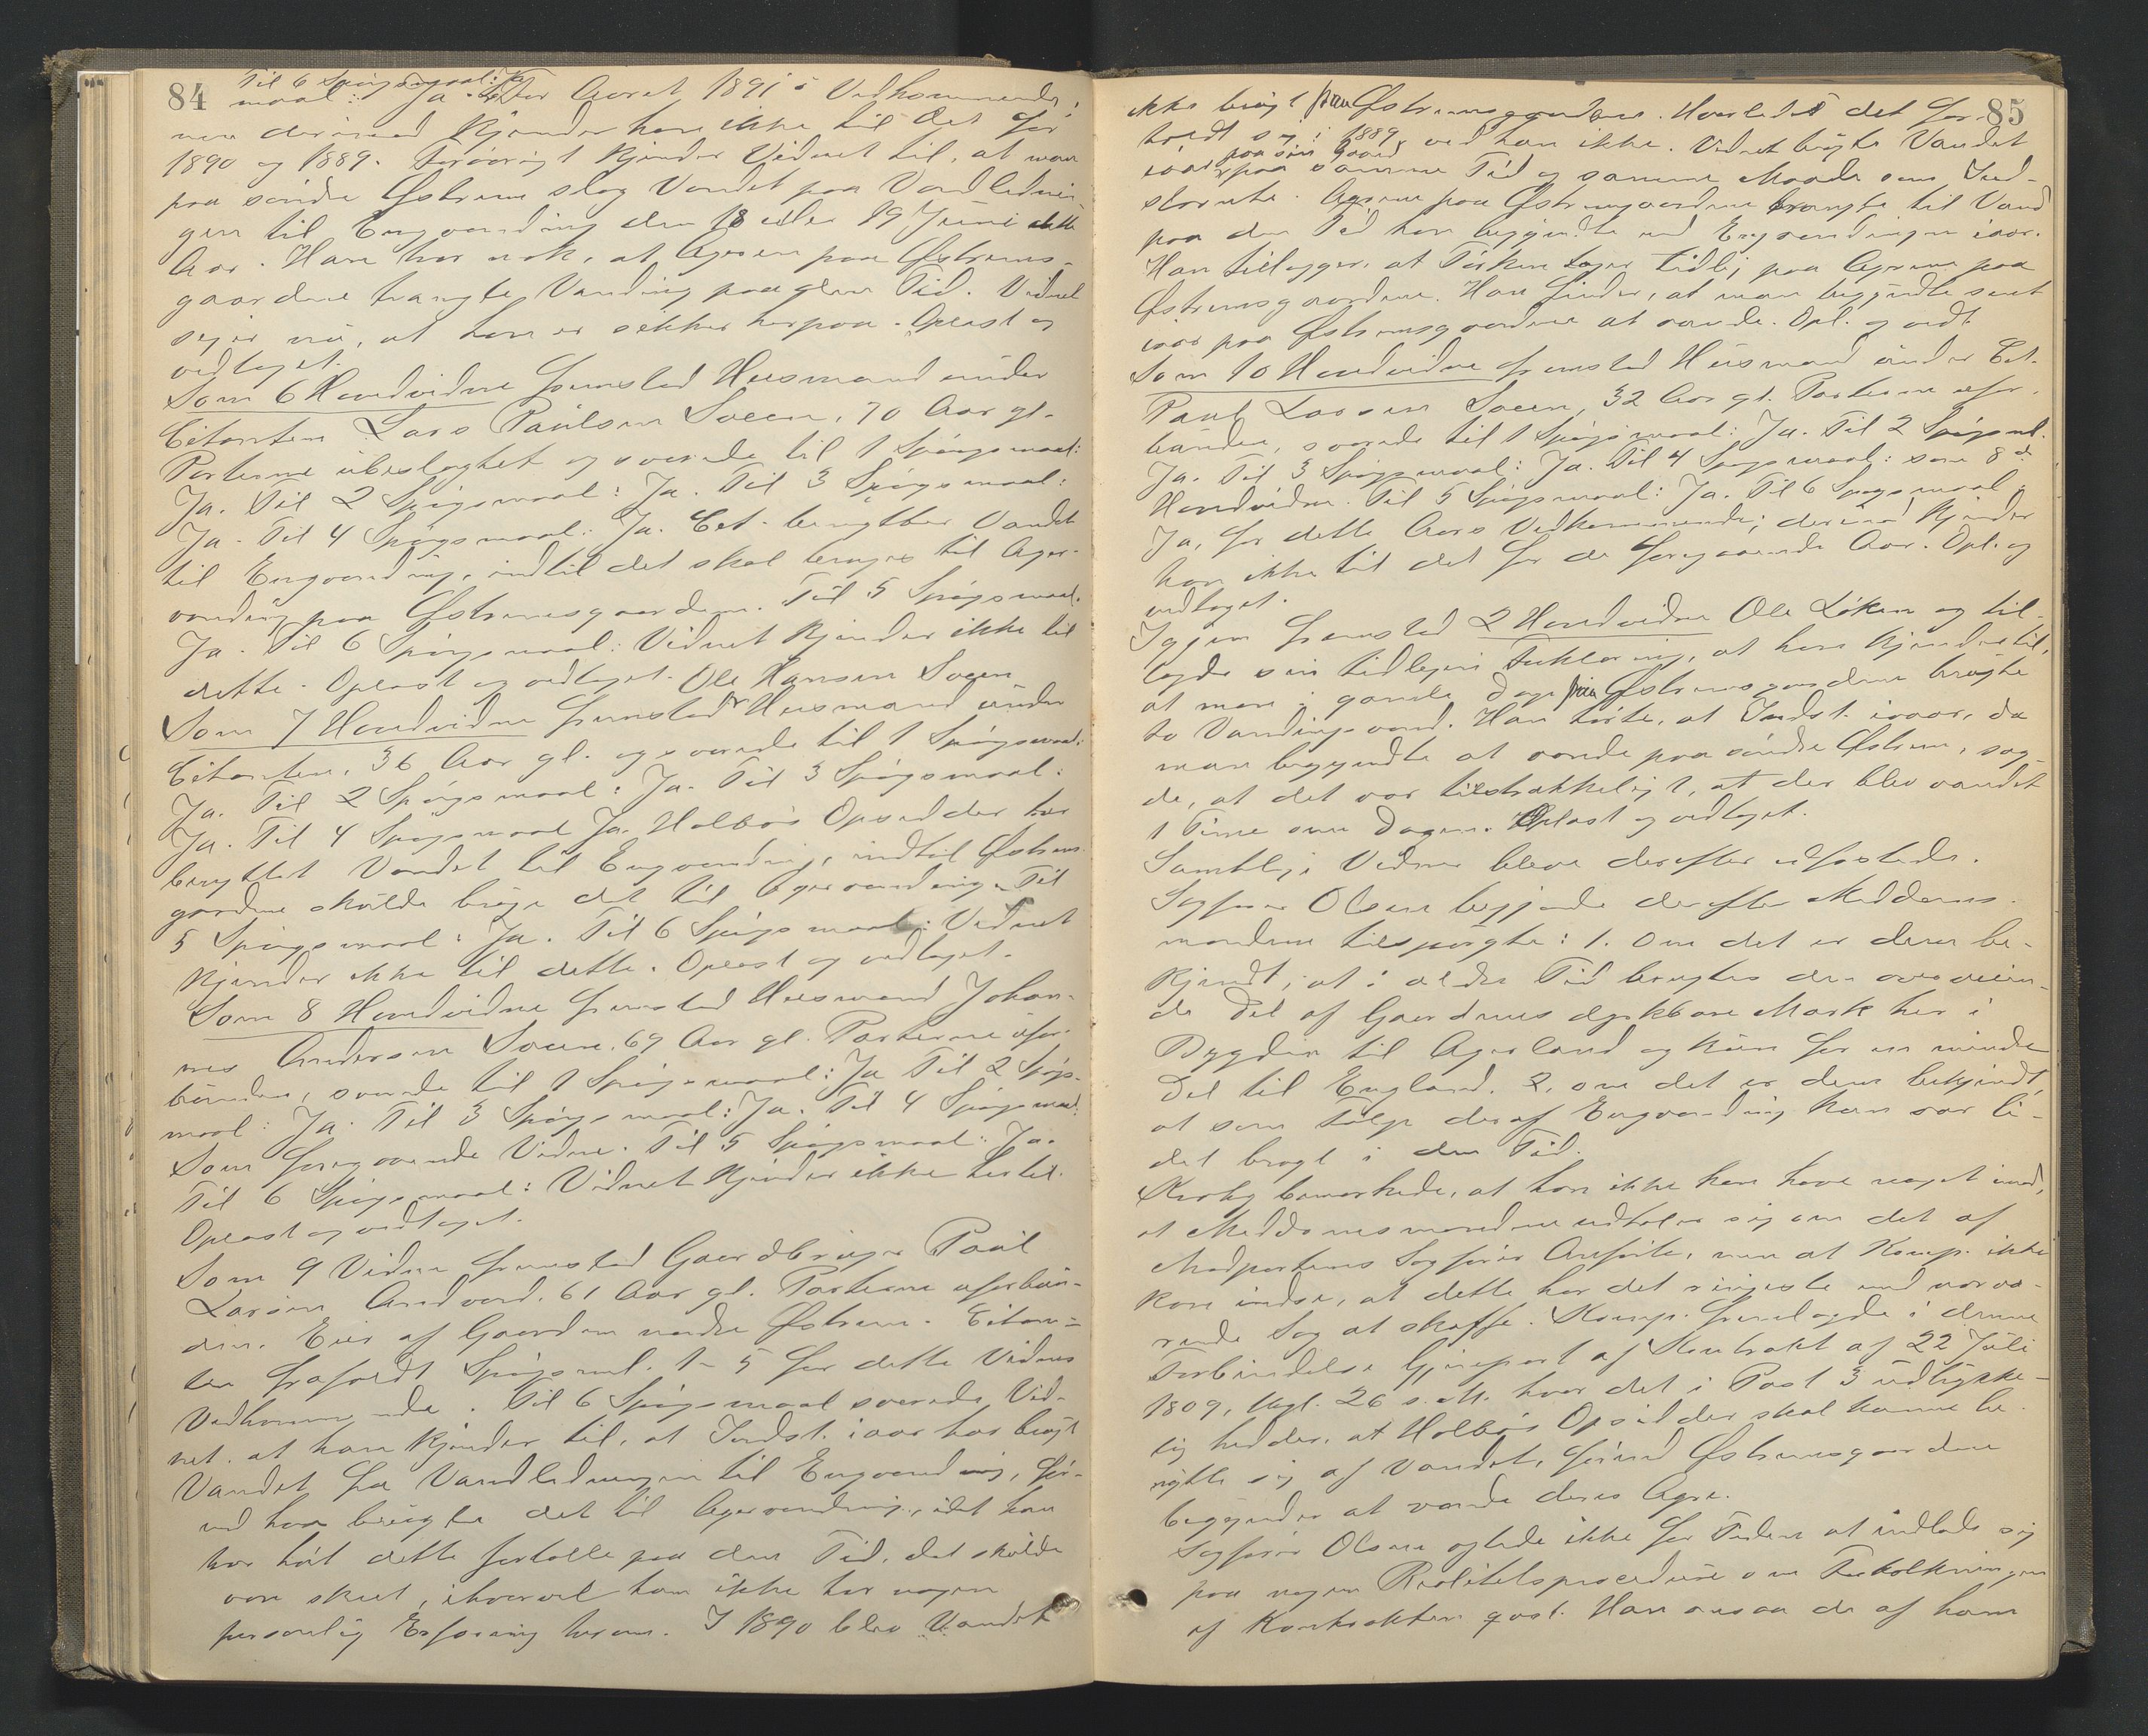 84
Til 6 Spörgsmaal: Ja
maal: Ja. For Aaret 1891's Vedkommende,
men derimod kjender han ikke til det for
1890 og 1889. Forövrigt kjender Vidnet til, at man
paa söndre Östrem slog Vandet paa Vandlednin-
gen til Engvanding den 18 eller 19 Juni dette
Aar. Han tror nok, at Agrene paa Östrems-
gaardene trængte Vanding paa den Tid. Vidnet
siger nu, at han er sikker herpaa. Oplæst og
vedtaget.
Som 6 Hovedvidne fremstod Husmand under
Citanten Lars Paulsen Sveen, 70 Aar gl.
Parterne ubeslægtet og svarede til 1 Spörgsmaal:
Ja. Til 2 Spörgsmaal: Ja. Til 3 Spörgsmaal:
Ja. Til 4 Spörgsmaal: Ja. Cit. benytter Vandet
til Engvanding, indtil det skal bruges til Ager-
vanding paa Östremsgaardene. Til 5 Spörgsmaal.
Ja. Til 6 Spörgsmaal: Vidnet kjender ikke til
dette. Oplæst og vedtaget. Ole Hansen Sveen
Som 7 Hovedvidne fremstod Husmand under
Citanten, 36 Aar gl. og svarede til 1 Spörgsmaal:
Ja. Til 2 Spörgsmaal: Ja. Til 3 Spörgsmaal:
Ja. Til 4 Spörgsmaal Ja. Holbös Opsidder har
benyttet Vandet til Engvanding, indtil Östrems-
gaardene skulde bruge det til Agervanding. Til
5 Spörgsmaal: Ja. Til 6 Spörgsmaal: Vidnet
kjender ikke til dette. Oplæst og vedtaget.
Som 8 Hovedvidne fremstod Husmand Johan-
nes Andersen Sveen. 69 Aar gl. Parterne ufor-
bunden, svarede til 1 Spörgsmaal: Ja Til 2 Spörgs-
maal: Ja. Til 3 Spörgsmaal: Ja. Til 4 Spörgsmaal:
Som foregaaende Vidne. Til 5 Spörgsmaal: Ja.
Til 6 Spörgsmaal: Vidnet kjender ikke hertil.
Oplæst og vedtaget.
Som 9 Vidne fremstod Gaardbruger Paul
Larsen Andvord. 61 Aar gl. Parterne uforbun-
den. Eier af Gaarden nordre Östrem. Citan-
ten frafaldt Spörgsml. 1-5 for dette Vidnes
Vedkommende. Til 6 Spörgsmaal svarede Vid-
net. at han kjender til, at Indst. iaar har brugt
Vandet fra Vandledningen til Engvanding, för-
end han brugte det til Agervanding, idet han
har hört dette fortælle paa den Tid, det skulde
være skeet, ihvorvel han ikke har nogen
personlig Erfaring herom. I 1890 blev Vandet
85
ikke brugt fra Östremsgaardene. Hvorledes det for-
holdt sig i 1889, ved han ikke. Vidnet brugte Vandet
paa sin Gaard
iaar paa samme Tid og samme Maade som Ind-
stevnte. Agrene paa Östremgaardene trængte til Vand
paa den Tid han begyndte med Engvandingen iaar.
Han tillægger, at Törken tager tidlig paa Agrene paa
Östremsgaardene. Han finder, at man begyndte sent
iaar paa Östremsgaardene at vande. Opl. og vedt.
Som 10 Hovedvidne fremstod Husmand under Cit.
Paul Larsen Sveen, 32 Aar gl. Parterne ufor-
bunden, svarede til 1 Spörgsmaal: Ja. Til 2 Spörgsml.
Ja. Til 3 Spörgsmaal: Ja. Til 4 Spörgsmaal: som 8de
Hovedvidne. Til 5 Spörgsmaal: Ja. Til 6 Spörgsmaal:
Ja, for dette Aars Vedkommende; derimod kjender
han ikke til det for de foregaaende Aar. Opl. og
vedtaget.
Igjen fremstod 2 Hovedvidne Ole Löken og til-
lagde sin tidligere Forklaring, at han kjender til,
at man i gamle Dage fra Östremsgaardene brugte
to Vandingsvand. Han hörte, at Indst. iaar, da
man begyndte at vande paa söndre Östrem, sag-
de, at det var tilstrækkeligt, at der blev vandet
1 Time om Dagen. Oplæst og vedtaget.
Samtlige Vidner bleve derefter edfæstede.
Sagförer Olsen begjærede derefter Meddoms-
mændene tilspurgte: 1. om det er dem be-
kjendt, at i ældre Tid brugtes den overveien-
de Del af Gaardenes dyrkbare Mark her i
Bygden til Agerland og kun for en mindre
Del til England. 2. om det er dem bekjendt,
at som Fölge deraf Engvanding kun var li-
det brugt i den Tid.
bemærkede, at han ikke kan have noget imod,
at Meddomsmændene udtaler sig om det af
Modpartens Sagförer Anförte, men at Komp. ikke
kan indse, at dette har det ringeste med nærvæ-
rende Sag at skaffe. Komp. fremlagde i denne
Forbindelse Gjenpart af Kontrakt af 22 Juli
1809, thgl. 26 s. M. hvor det i Post 3 udtrykke-
lig hedder, at Holbös Opsidder skal kunne be-
nytte sig af Vandet, förend Östremsgaardene
begynder at vande deres Agre.
Sagförer Olsen agtede ikke for Tiden at indlade sig
paa nogen Realitetsprocedure om Fortolkningen
af Kontrakten qvæst. Han ansaa de af ham